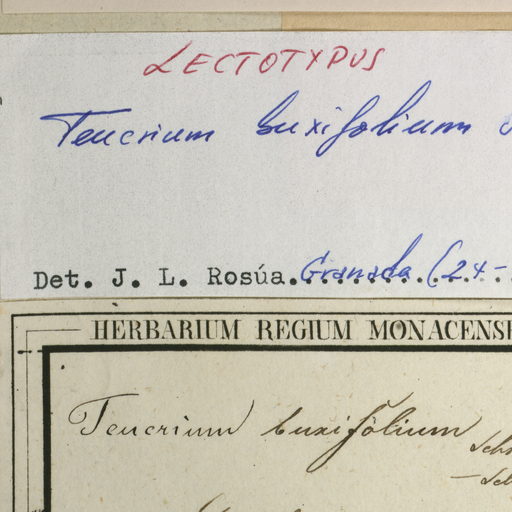 LECTOTYPUS
Teucrium buxifolium
Det. J. L. Rosúa. Granada (24-
HERBARIUM REGIUM MONACENSE
Teucrium buxifolium